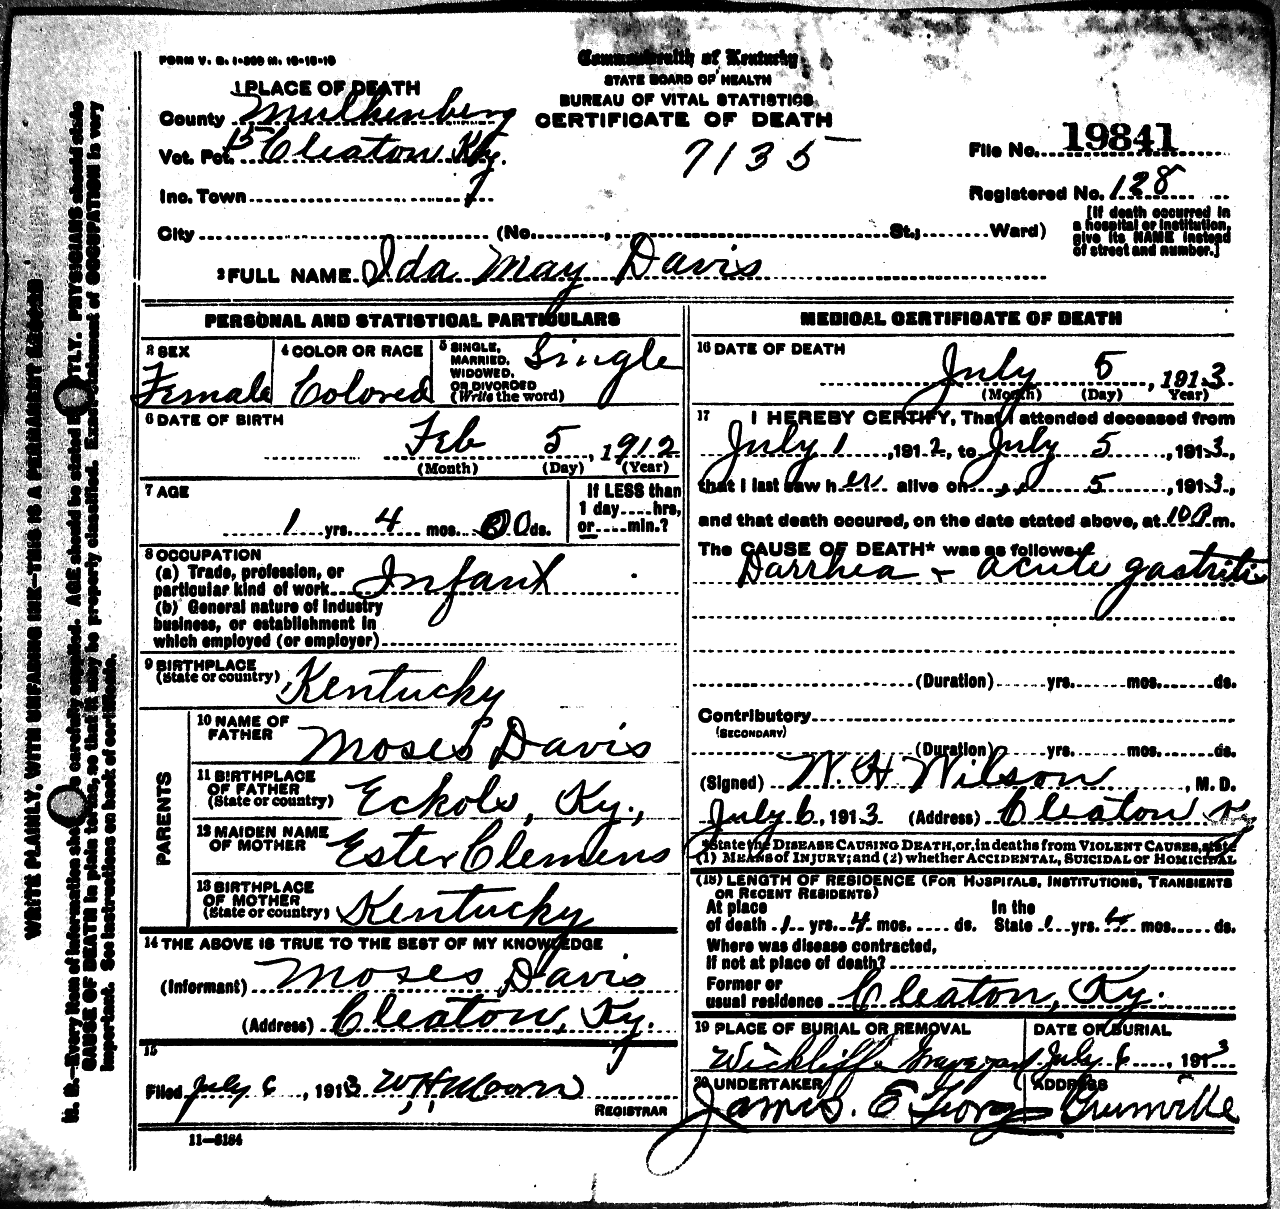 FORM V. S. 1-300 M. 10-18-10
Commonwealth of Kentucky
STATE BOARD OF HEALTH
BUREAU OF VITAL STATISTICS
CERTIFICATE OF DEATH
1 PLACE OF DEATH
County Muhlenberg
Vot. Pct. 15 Cleaton Ky.
Inc. Town
City (No. , St.; Ward)
7135
File No. 19841
Registered No. 128
[If death occurred in
a hospital or institution,
give its NAME instead
of street and number.]
2 FULL NAME Ida May Davis
PERSONAL AND STATISTICAL PARTICULARS
3 SEX
Female
4 COLOR OR RACE
Colored
5 SINGLE,
MARRIED,
WIDOWED,
OR DIVORCED
(Write the word)
Single
6 DATE OF BIRTH
Feb 5, 1912
(Month) (Day) (Year)
7 AGE
1 yrs. 4 mos. ds.
If LESS than
1 day hrs,
or min.?
8 OCCUPATION
(a) Trade, profession, or
particular kind of work Infant
(b) General nature of Industry
business, or establishment in
which employed (or employer)
9 BIRTHPLACE
(State or country) Kentucky
PARENTS
10 NAME OF
FATHER Moses Davis
11 BIRTHPLACE
OF FATHER
(State or country) Eckols, Ky,
12 MAIDEN NAME
OF MOTHER Ester Clemens
13 BIRTHPLACE
OF MOTHER
(State or country) Kentucky
14 THE ABOVE IS TRUE TO THE BEST OF MY KNOWLEDGE
(Informant) Moses Davis
(Address) Cleaton, Ky.
15
Filed July 6, 1913 W H Moorn
REGISTRAR
11-6184
MEDICAL CERTIFICATE OF DEATH
16 DATE OF DEATH
July 5, 1913
(Month) (Day) Year)
17 I HEREBY CERTIFY, That I attended deceased from
July 1, 1912, to July 5, 1913,
that I last saw her alive on ,, 5, 1913,
and that death occured, on the date stated above, at 10 P m.
The CAUSE OF DEATH* was as follows:
Darrhea + acute gastritis
(Duration) yrs. mos. ds.
Contributory
(SECONDARY)
(Duration) yrs. mos. ds.
(Signed) W. H Wilson, M. D.
July 6, 1913 (Address) Cleaton Ky
*State the DISEASE CAUSING DEATH, or, in deaths from VIOLENT CAUSES, state
(1) MEANS of INJURY; and (2) whether ACCIDENTAL, SUICIDAL or HOMICIDAL
(18) LENGTH OF RESIDENCE (FOR HOSPITALS, INSTITUTIONS, TRANSIENTS
OR RECENT RESIDENTS)
At place
of death 1 yrs. 4 mos. ds.
In the
State 1 yrs. 4 mos. ds.
Where was disease contracted,
If not at place of death?
Former or
usual residence Cleaton, Ky.
19 PLACE OF BURIAL OR REMOVAL
Wickliffe Graveyard
DATE OF BURIAL
July 6, 1913
20 UNDERTAKER
James. E
ADDRESS
WRITE PLAINLY, WITH UNFADING INK—THIS IS A PERMANENT
N. B.—Every item of information should be carefully supplied. AGE should be stated EXACTLY. PHYSICIANS should state
CAUSE OF DEATH in plain terms, so that it may be properly classified. Exact statement of OCCUPATION is very
important. See instructions on back of certificate.